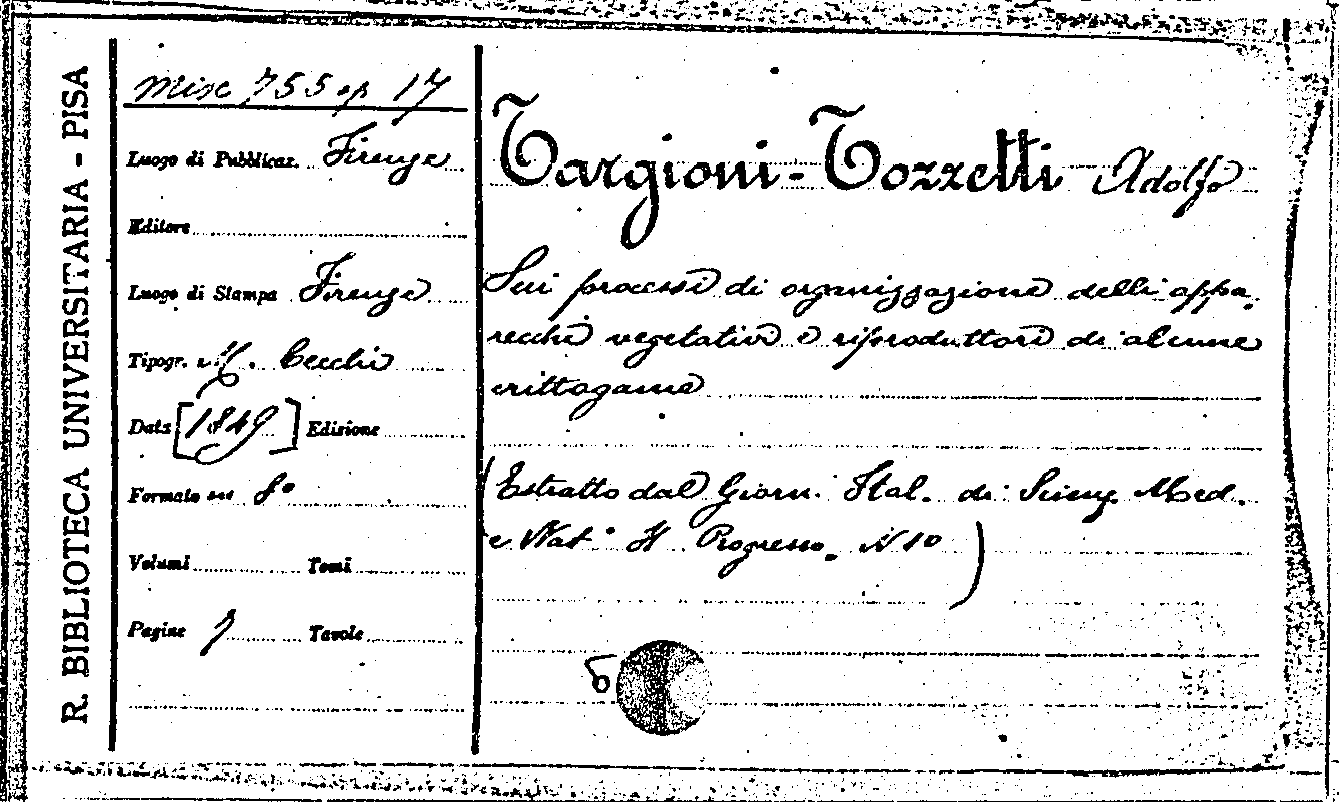 R. BIBLIOTECA UNIVERSITARIA - PISA
Misc 755 op 17
Luogo di Pubblicaz. Firenze
Editore
Luogo di Stampa Firenze
Tipogr. M. Cecchi
Data [1849] Edizione
Formato in 8°
Volumi Tomi
Pagine 7 Tavole
Targioni-Tozzetti Adolfo
Sui processi di organizzazione delli appa-
recchi vegetativi e riproduttori di alcune
crittogame
(Estratto dal Giorn. Ital. di Scienz. Med.
e Nat. Il Progresso. N 10)